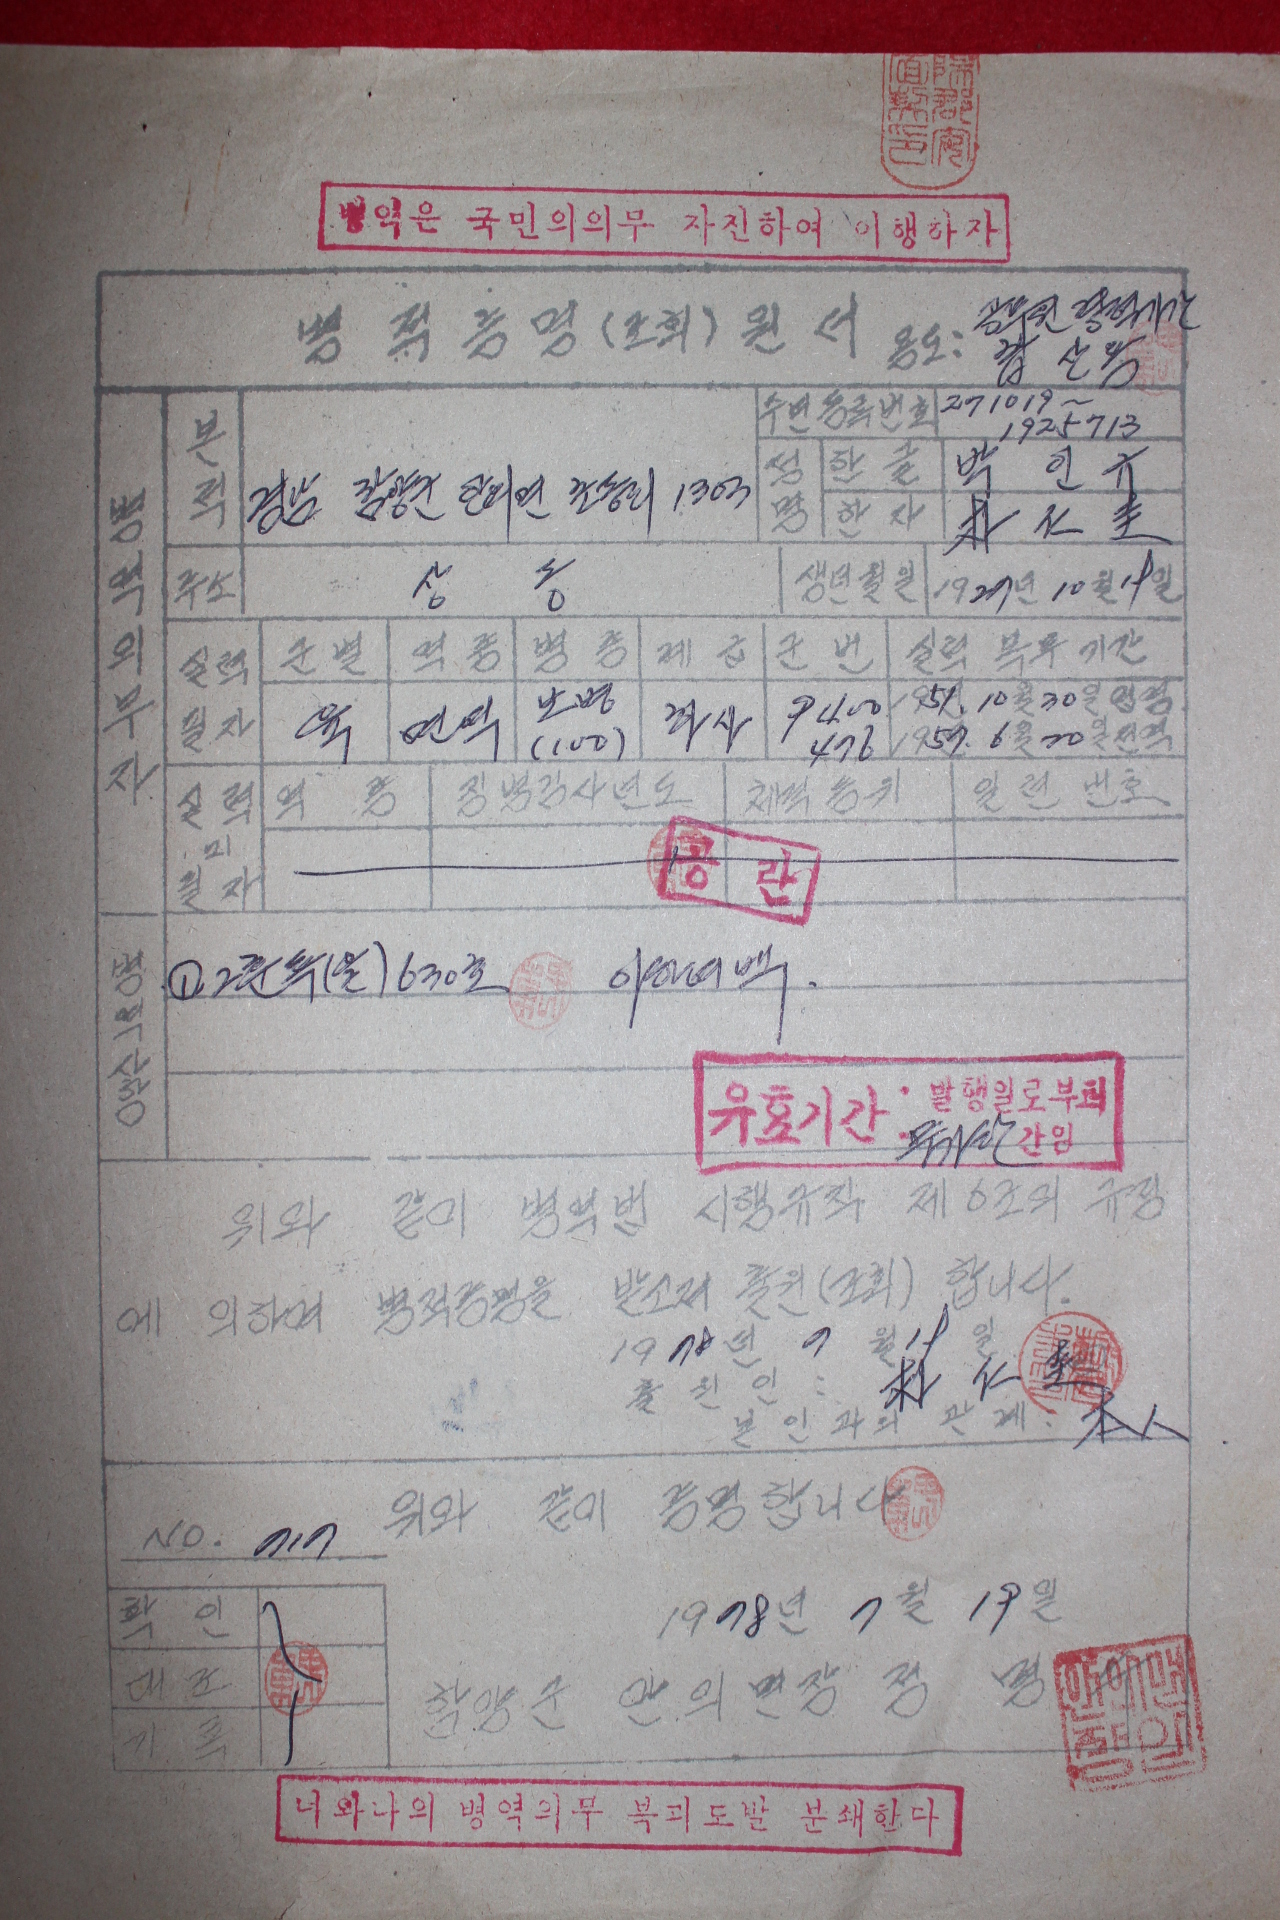 병역은 국민의의무 자진하여 이행하자
병적증명(조회)원서 용도: 공무원
병역의무자
본적 경남 함양군 안의면 1303
주민등록번호 271019~
1925713
성명 한글 박인규
한자 朴仁圭
주소 상동
생년월일 1927년 10월 19일
실력필자 군별 역종 병종 계급 군번 실력복무기간
육 면역 보병(100) 하사 9400476
1954. 10월 30일 입영
1957. 6월 20일 전역
실력미필자 역종 징병검사년도 체격등위 일련번호
공란
이하여백.
유효기간: 발행일로부터
간임
위와 같이 병역법 시행규칙 제6조의 규정
에 의하여 병적증명을 발소저 출원(조회)합니다.
1978년 7월 19일
출원인: 朴仁圭
본인과의 관계: 本人
위와 같이 증명합니다
NO. 717
확인
대조
기록
1978년 7월 19일
함양군 안의면장 정명
너와나의 병역의무 북괴도발 분쇄한다